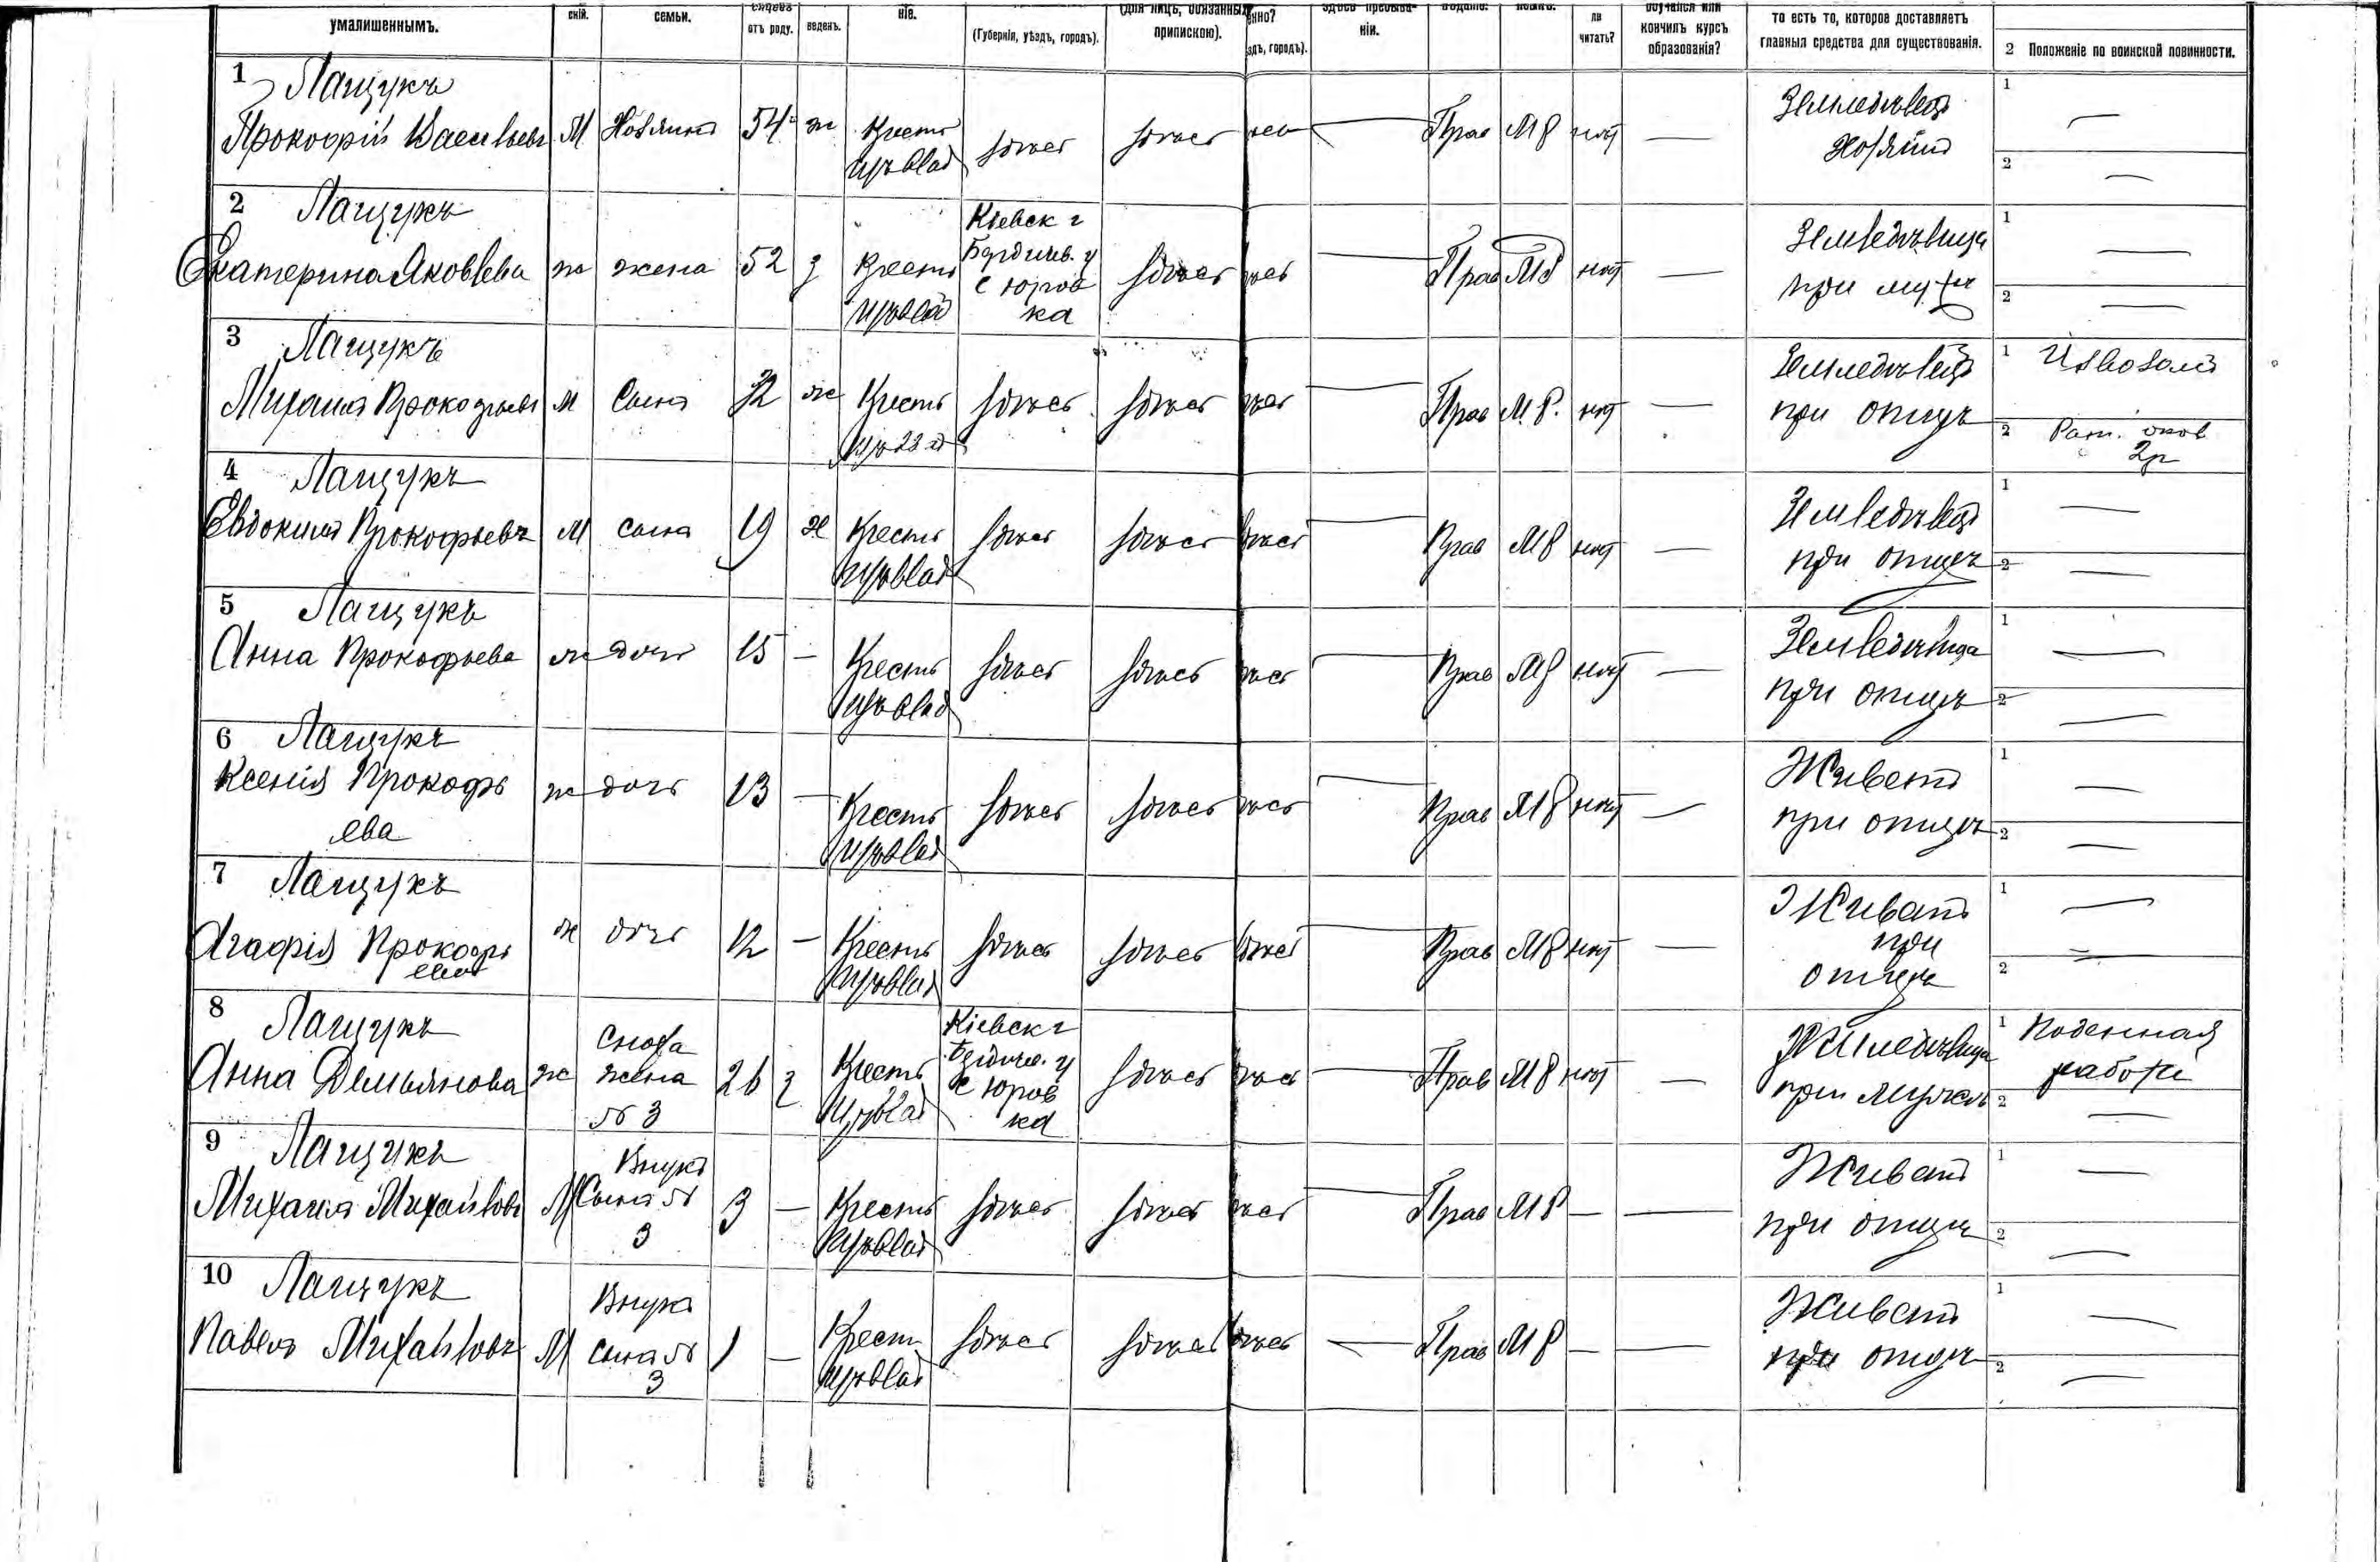 умалишеннымъ. сній. семьи. отъ роду. веденъ. ніе. (Губернія, уѣздъ, городъ). припискою). здъ, городъ). ніи. ли читать? кончилъ курсъ образованія? то есть то, которое доставляетъ главныя средства для существованія. 2 Положеніе по воинской повинности.
1 Лащукъ
Прокофій Васильевъ М Хозяинъ 54 ж Крест здѣсь здѣсь Прав М Р нѣтъ — Земледѣлецъ Хозяинъ 1 — 2 —
2 Лащукъ
Екатерина Яковлева ж жена 52 з Крест Кіевск г Бердичев. у с Юров ка здѣсь Прав М Р нѣтъ — Земледѣлица при мужѣ 1 — 2 —
3 Лащукъ
Михаилъ Прокофьевъ М Сынъ 32 ж Кресть здѣсь здѣсь Прав М. Р. нѣтъ — Земледѣлецъ при отцѣ 1 Извозомъ 2 Рат. 2р
4 Лащукъ
Евдокимъ Прокофьевъ М сынъ 19 х Кресть здѣсь здѣсь здѣсь Прав М Р нѣтъ — Земледѣлецъ при отцѣ 1 — 2 —
5 Лащукъ
Анна Прокофьева ж дочь 15 — Кресть здѣсь здѣсь Прав М Р нѣтъ — Земледѣлица при отцѣ 1 — 2 —
6 Лащукъ
Ксенія Прокофь
ева ж дочь 13 — Кресть здѣсь здѣсь Прав М Р нѣтъ — Живетъ при отцѣ 1 — 2 —
7 Лащукъ
Агафія Прокофь
ева ж дочь 12 — Кресть здѣсь здѣсь здѣсь Прав М Р нѣтъ — Живетъ при отцѣ 1 — 2 —
8 Лащукъ
Анна Демьянова ж Сноха жена № 3 26 з Кресть Кіевск г Бердичев. у с Юров ка здѣсь Прав М Р нѣтъ — Земледѣлица при мужѣ 1 Поденная работа 2 —
9 Лащукъ
Михаилъ Михайловъ М Внукъ Сынъ № 3 3 — Кресть здѣсь здѣсь Прав М Р — — Живетъ при отцѣ 1 — 2 —
10 Лащукъ
Павелъ Михайловъ М Внукъ сынъ № 3 1 — Крест здѣсь здѣсь здѣсь — Прав М Р — — Живетъ при отцѣ 1 — 2 —